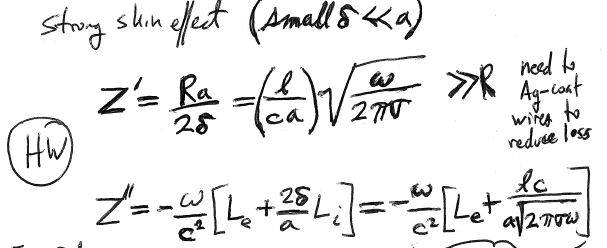 strong skin effect (small δ << a)
Z' = Ra/2δ = (l/ca) √(ω/2πσ) >> R
need to
Ag-coat
wires to
reduce loss
HW
Z'' = -ω/c² [Lₑ + 2δ/a Lᵢ] = -ω/c² [Lₑ + lc/a√2πσω]